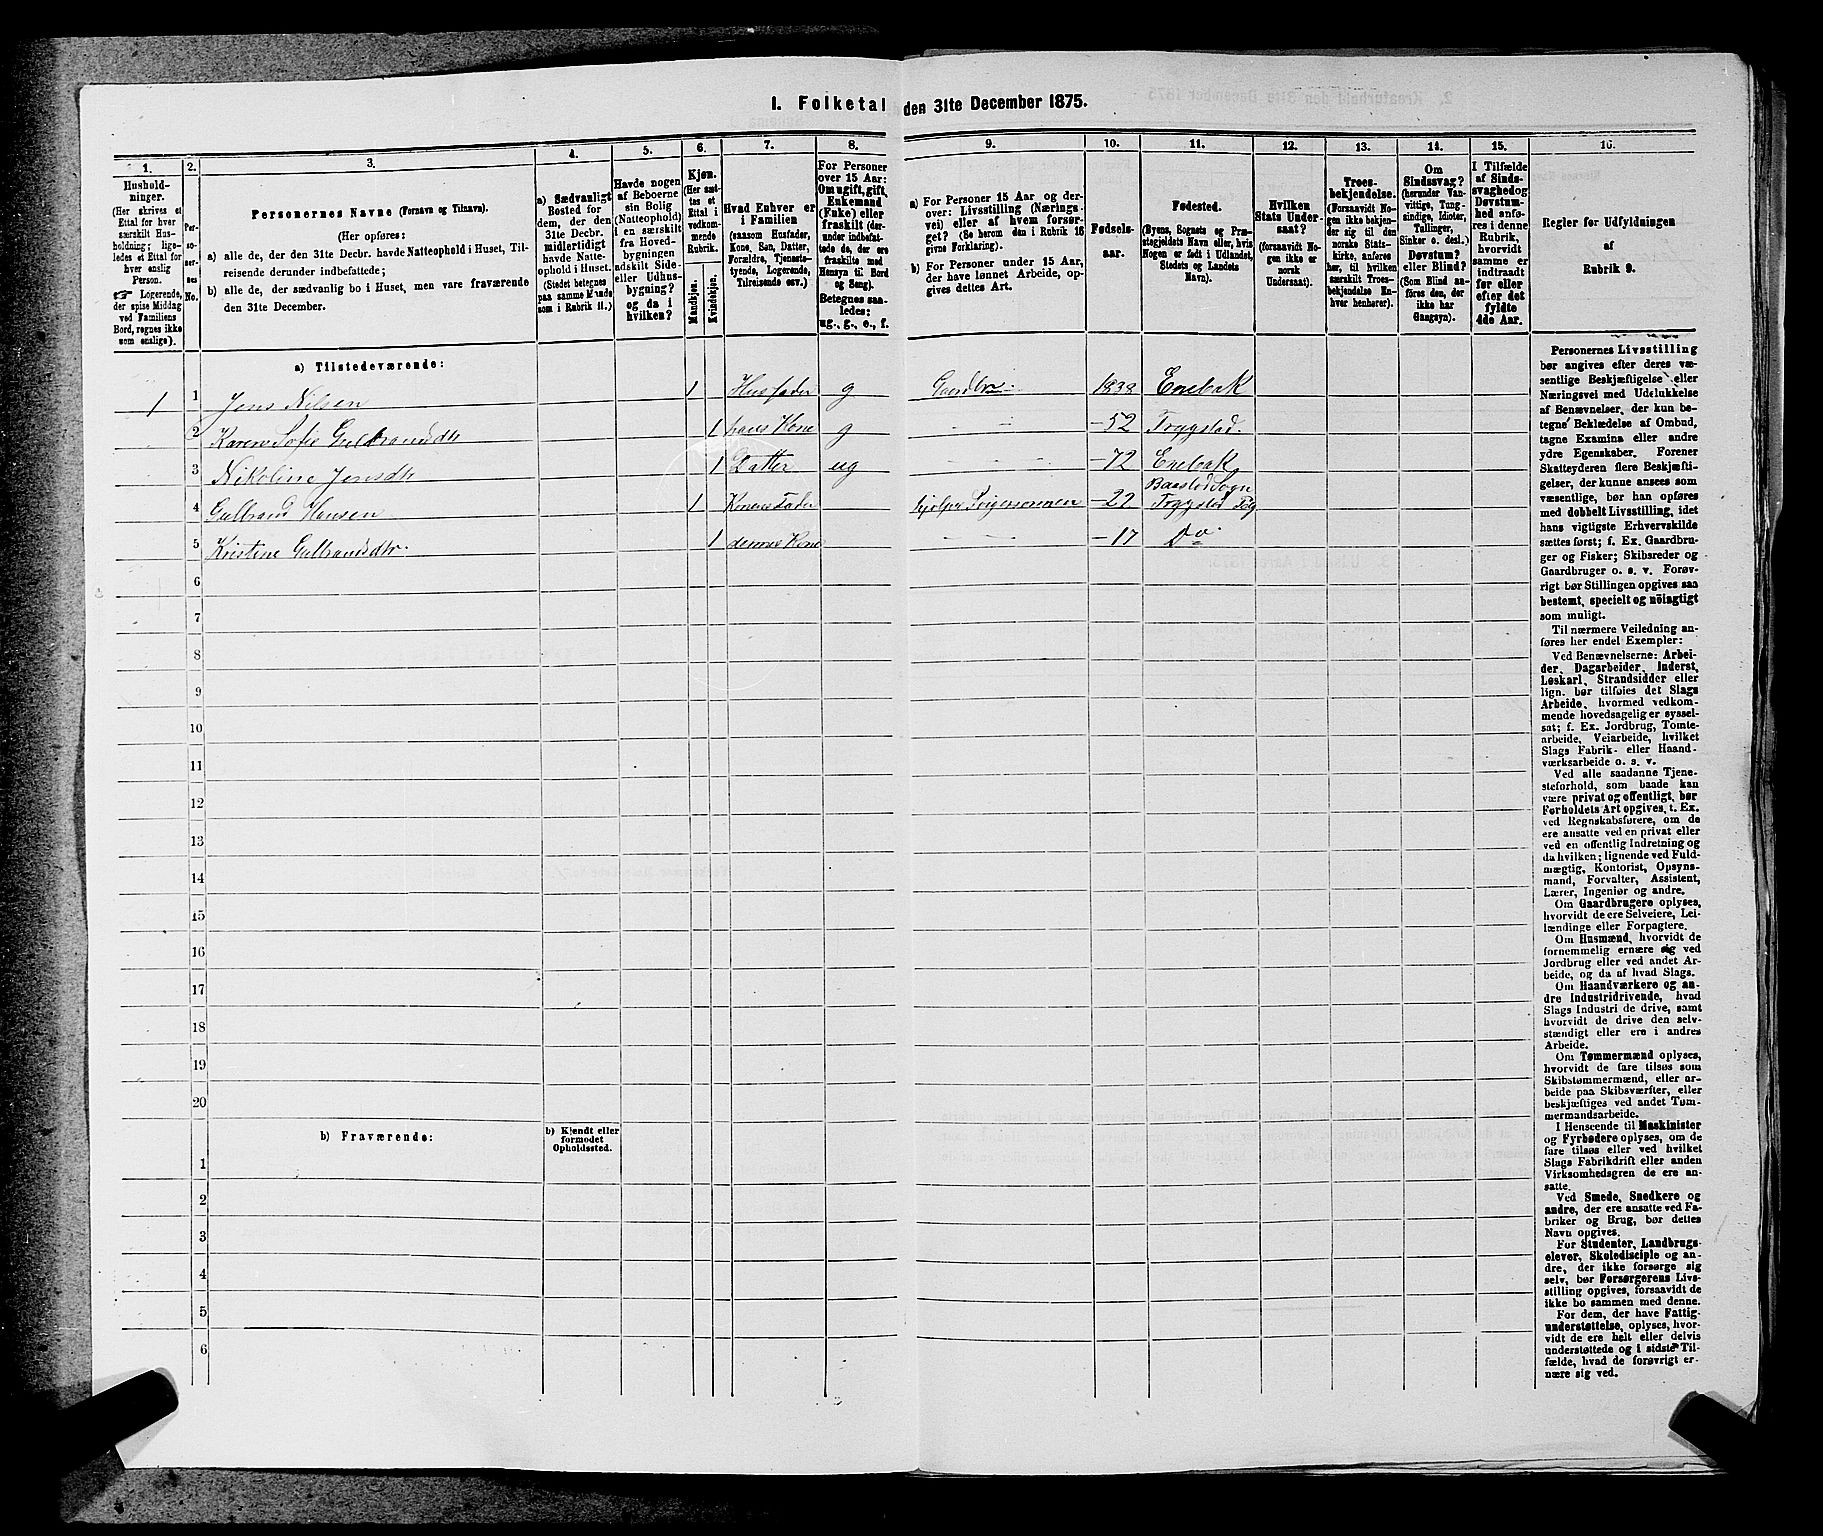 1. Folketal den 31te December 1875.
1. 2. 3. 4. 5. 6. 7. 8. 9. 10. 11. 12. 13. 14. 15. 16.
Hushold-
ninger.
(Her skrives et
Ettal for hver
særskilt Hus-
holdning; lige-
ledes et Ettal for
hver enslig
Person.
☞ Logerende,
der spise Middag
ved Familiens
Bord, regnes ikke
som enslige).
Per-
so-
ner-
nes
No.
Personernes Navne (Fornavn og Tilnavn).
(Her opføres:
a) alle de, der den 31te Decbr. havde Natteophold i Huset, Til-
reisende derunder indbefattede;
b) alle de, der sædvanlig bo i Huset, men vare fraværende
den 31te December.
a) Sædvanligt
Bosted for
dem, der den
31te Decbr.
midlertidigt
havde Natte-
ophold i Huset.
(Stedet betegnes
paa samme Maade
som i Rubrik 11.)
Havde nogen
af Beboerne
sin Bolig
(Natteophold)
i en særskilt
fra Hoved-
bygningen
adskilt Side-
eller Udhus-
bygning?
og da i
hvilken?
Kjøn.
(Her sæt-
tes et
Ettal i
vedkom-
mende
Rubrik.
Mandkjøn.
Kvindekjøn.
Hvad Enhver er
i Familien
(saasom Husfader,
Kone, Søn, Datter,
Forældre, Tjeneste-
tyende, Logerende,
Tilreisende osv.)
For Personer
over 15 Aar:
Om ugift, gift,
Enkemand
(Enke) eller
fraskilt (her-
under indbefat-
tede de, der ere
fraskilte med
Hensyn til Bord
og Seng).
Betegnes saa-
ledes:
ug., g., e., f.
a) For Personer 15 Aar og der-
over: Livsstilling (Nærings-
vei) eller af hvem forsør-
get? (Se herom den i Rubrik 16
givne Forklaring).
b) For Personer under 15 Aar,
der have lønnet Arbeide, op-
gives dettes Art.
Fødsels-
aar.
Fødested.
(Byens, Sognets og Præ-
stegjeldets Navn eller, hvis
Nogen er født i Udlandet,
Stedets og Landets
Navn).
Hvilken
Stats Under-
saat?
(forsaavidt No-
gen ikke er
norsk
Undersaat).
Troes-
bekjendelse.
(Forsaavidt No-
gen ikke bekjen-
der sig til den
norske Stats-
kirke, anføres
her, til hvilken
særskilt Troes-
bekjendelse En-
hver henhører).
Om
Sindssvag?
(herunder Van-
vittige, Tung-
sindige, Idioter,
Tullinger,
Sinker o. desl.)
Døvstum?
eller Blind?
(Som Blind an-
føres den, der
ikke har
Gangsyn).
I Tilfælde
af Sinds-
svaghed og
Døvstum-
hed anfø-
res i denne
Rubrik,
hvorvidt
samme er
indtraadt
før eller
efter det
fyldte
4de Aar.
Regler for Udfyldningen
af
Rubrik 9.
a) Tilstedeværende:
1 1 Jens Nilsen 1 Husfader g Gaardbr 1838 Enebak
2 Karen Sofie Gulbrandsdtr 1 hans Kone g — — — 52 Trygstad
3 Nikoline Jensdtr 1 Datter ug — — — — 72 Enebak
Baastad Sogn
4 Gulbrand Hansen 1 Konens Fader hjelper Svigersønnen — 22 Trygstad Pgl
5 Kristine Gulbrandsdtr. 1 dennes Kone — — — 17 Do
6
7
8
9
10
11
12
13
14
15
16
17
18
19
20
b) Fraværende:
b) Kjendt eller
formodet
Opholdssted.
1
2
3
4
5
6
Personernes Livsstilling
bør angives efter deres væ-
sentlige Beskjæftigelse eller
Næringsvei med Udelukkelse
af Benævnelser, der kun be-
tegne Beklædelse af Ombud,
tagne Examina eller andre
ydre Egenskaber. Forener
Skatteyderen flere Beskjæfti-
gelser, der kunne ansees som
væsentlige, bør han opføres
med dobbelt Livsstilling, idet
hans vigtigste Erhvervskilde
sættes først; f. Ex. Gaardbru-
ger og Fisker; Skibsreder og
Gaardbruger o. s. v. Forøv-
rigt bør Stillingen opgives saa
bestemt, specielt og nöiagtigt
som muligt.
Til nærmere Veiledning an-
føres her endel Exempler:
Ved Benævnelserne: Arbei-
der, Dagarbeider, Inderst,
Løskarl, Strandsidder eller
lign. bør tilføies det Slags
Arbeide, hvormed vedkom-
mende hovedsagelig er syssel-
sat; f. Ex. Jordbrug, Tomte-
arbeide, Veiarbeide, hvilket
Slags Fabrik- eller Haand-
værksarbeide o. s. v.
Ved alle saadanne Tjene-
steforhold, som baade kan
være privat og offentligt, bør
Forholdets Art opgives, t. Ex.
ved Regnskabsførere, om de
ere ansatte ved en privat eller
ved en offentlig Indretning og
da hvilken; lignende ved Fuld-
mægtig, Kontorist, Opsyns-
mand, Forvalter, Assistent,
Lærer, Ingeniør og andre.
Om Gaardbrugere oplyses,
hvorvidt de ere Selveiere, Lei-
lændinge eller Forpagtere.
Om Husmænd, hvorvidt de
fornemmelig ernære sig ved
Jordbrug eller ved andet Ar-
beide, og da af hvad Slags.
Om Haandværkere og an-
dre Industridrivende, hvad
Slags Industri de drive, samt
hvorvidt de drive den selv-
stændigt eller ere i andres
Arbeide.
Om Tømmermænd oplyses,
hvorvidt de fare tilsøs som
Skibstømmermænd, eller ar-
beide paa Skibsværfter, eller
beskjæftiges ved andet Tøm-
mermandsarbeide.
I Henseende til Maskinister
og Fyrbødere oplyses, om de
fare tilsøs eller ved hvilket
Slags Fabrikdrift eller anden
Virksomhedsgren de ere an-
satte.
Ved Smede, Snedkere og
andre, der ere ansatte ved Fa-
briker og Brug, bør dettes
Navn opgives.
For Studenter, Landbrugs-
elever, Skoledisciple og an-
dre, der ikke forsørge sig
selv, bør Forsørgerens Livs-
stilling opgives, forsaavidt de
ikke bo sammen med denne.
For dem, der have Fattig-
understøttelse, oplyses, hvor-
vidt de ere helt eller delvis
understøttede og i sidste Til-
fælde, hvad de forøvrigt er-
nære sig ved.